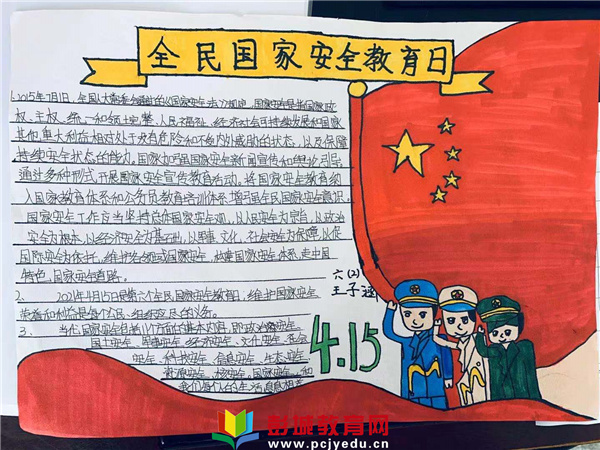 全民国家安全教育日
1、2015年7月1日,全国人大常委会通过的《国家安全法》规定,国家安全是指国家政
权、主权、统一和领土完整、人民福祉、经济社会可持续发展和国家
其他重大利益相对处于没有危险和不受内外威胁的状态,以及保障
持续安全状态的能力。国家加强国家安全新闻宣传和舆论引导
通过多种形式开展国家安全宣传教育活动。将国家安全教育纳
入国家教育体系和公务员教育培训体系,增强全民国家安全意识。
国家安全工作应当坚持总体国家安全观,以人民安全为宗旨,以政治
安全为根本,以经济安全为基础,以军事、文化、社会安全为保障,以促
国际安全为依托,维护各领域国家安全,构建国家安全体系,走中国
特色国家安全道路。
六(2)
王子涵
2、2021年4月15日是第六个全民国家安全教育日,维护国家安全
荣誉和利益是每个公民、组织应尽的义务。
3、当代国家安全包括11方面的基本内容,即政治安全
国土安全、军事安全、经济安全、文化安全、社会
安全、科技安全、信息安全、生态安全
资源安全、核安全。国家安全和
我们每个人的生活息息相关
4.15
彭城教育网
www.pcjyedu.cn